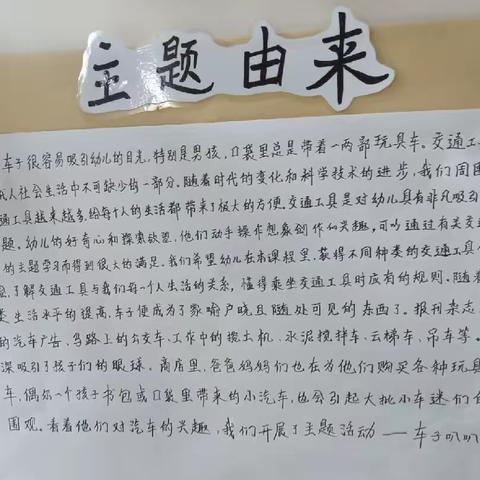 主题由来
车子很容易吸引幼儿的目光,特别是男孩,口袋里总是带着一两部玩具车。交通工
我人社会生活中不可缺少的一部分。随着时代的变化和科学技术的进步,我们周围
通工具越来越多,给每个人的生活都带来了极大的方便。交通工具是对幼儿具有非凡吸引
题。幼儿的好奇心和探索欲望,他们动手操作想象创作的兴趣,可以通过有关交通
的主题学习而得到很大的满足。我们希望幼儿在本课程里,获得不同种类的交通工具
,了解交通工具与我们每一个人生活的关系,懂得乘坐交通工具时应有的规则。随着
类生活水平的提高,车子便成为了家喻户晓且随处可见的东西了。报刊杂志
的汽车广告、马路上的公交车、工作中的挖土机、水泥搅拌车、云梯车、吊车等。
深吸引了孩子们的眼球,商店里,爸爸妈妈们也在为他们购买各种玩具
车,偶尔一个孩子书包或口袋里带来的小汽车,也会引起大批小车迷们的
围观。看着他们对汽车的兴趣,我们开展了主题活动——车子叭叭